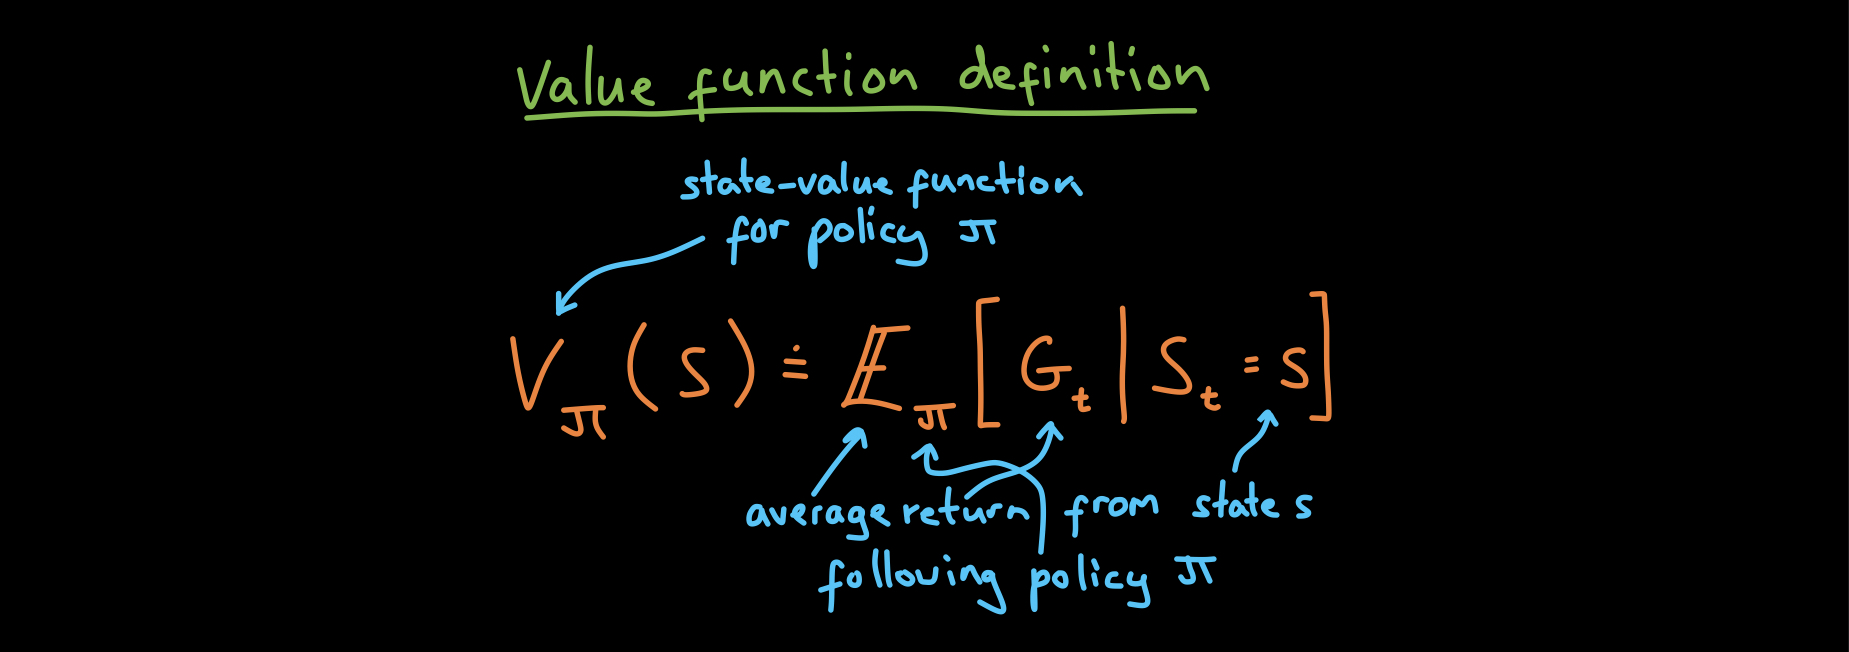 Value function definition
state-value function
for policy π
V_π(s) ≐ 𝔼_π[G_t | S_t = s]
average return from state s
following policy π